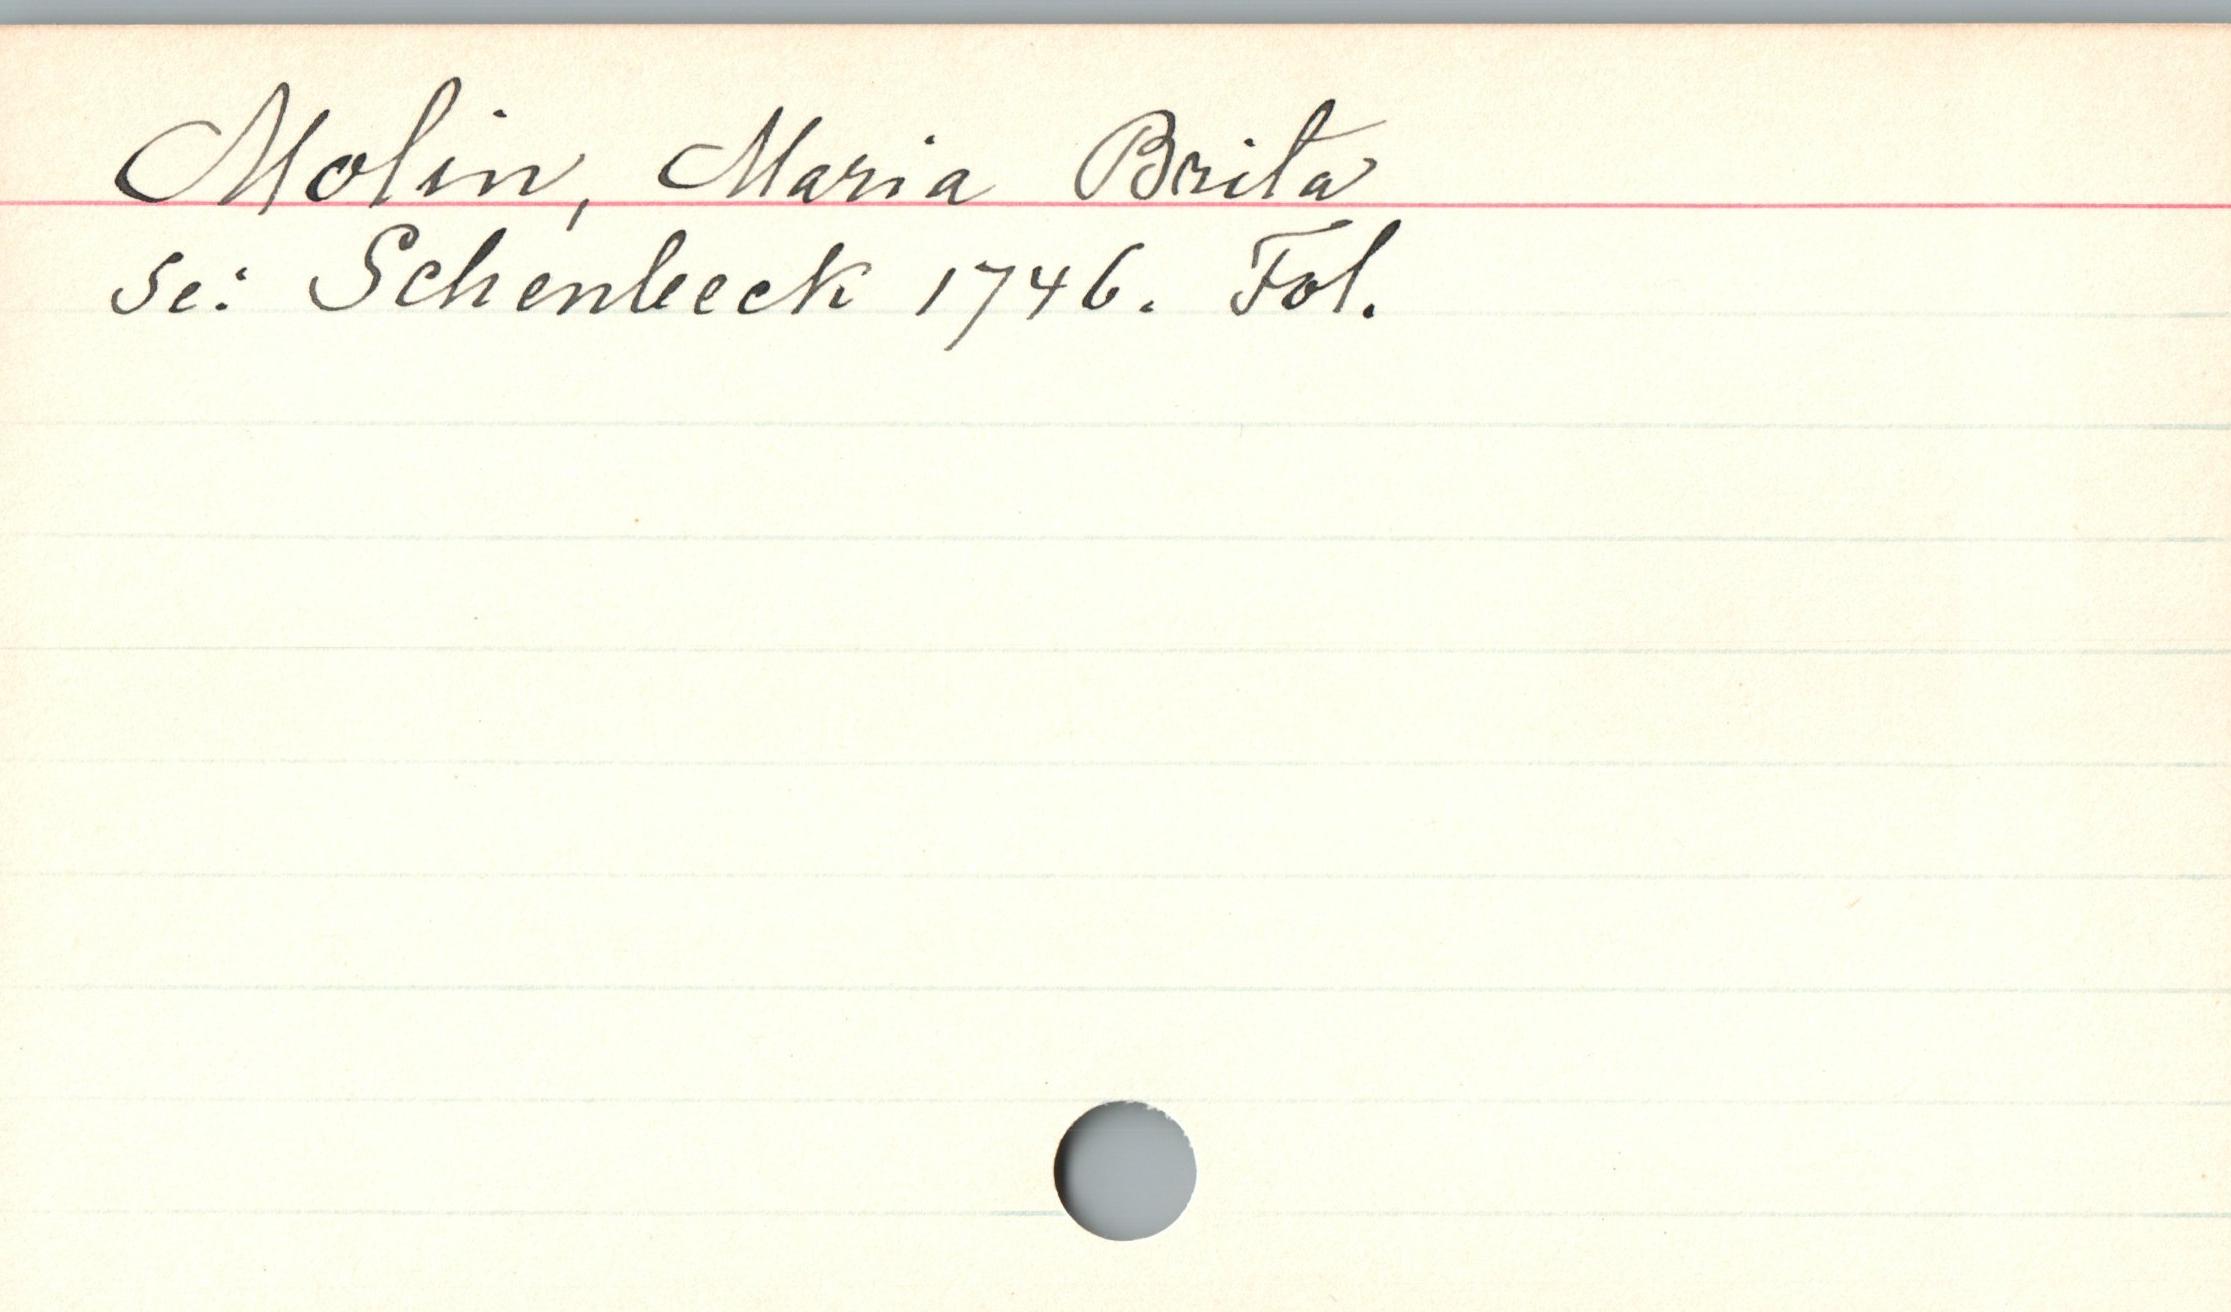 Molin, Maria Brita
se: Schenbeeck 1746. Fol.